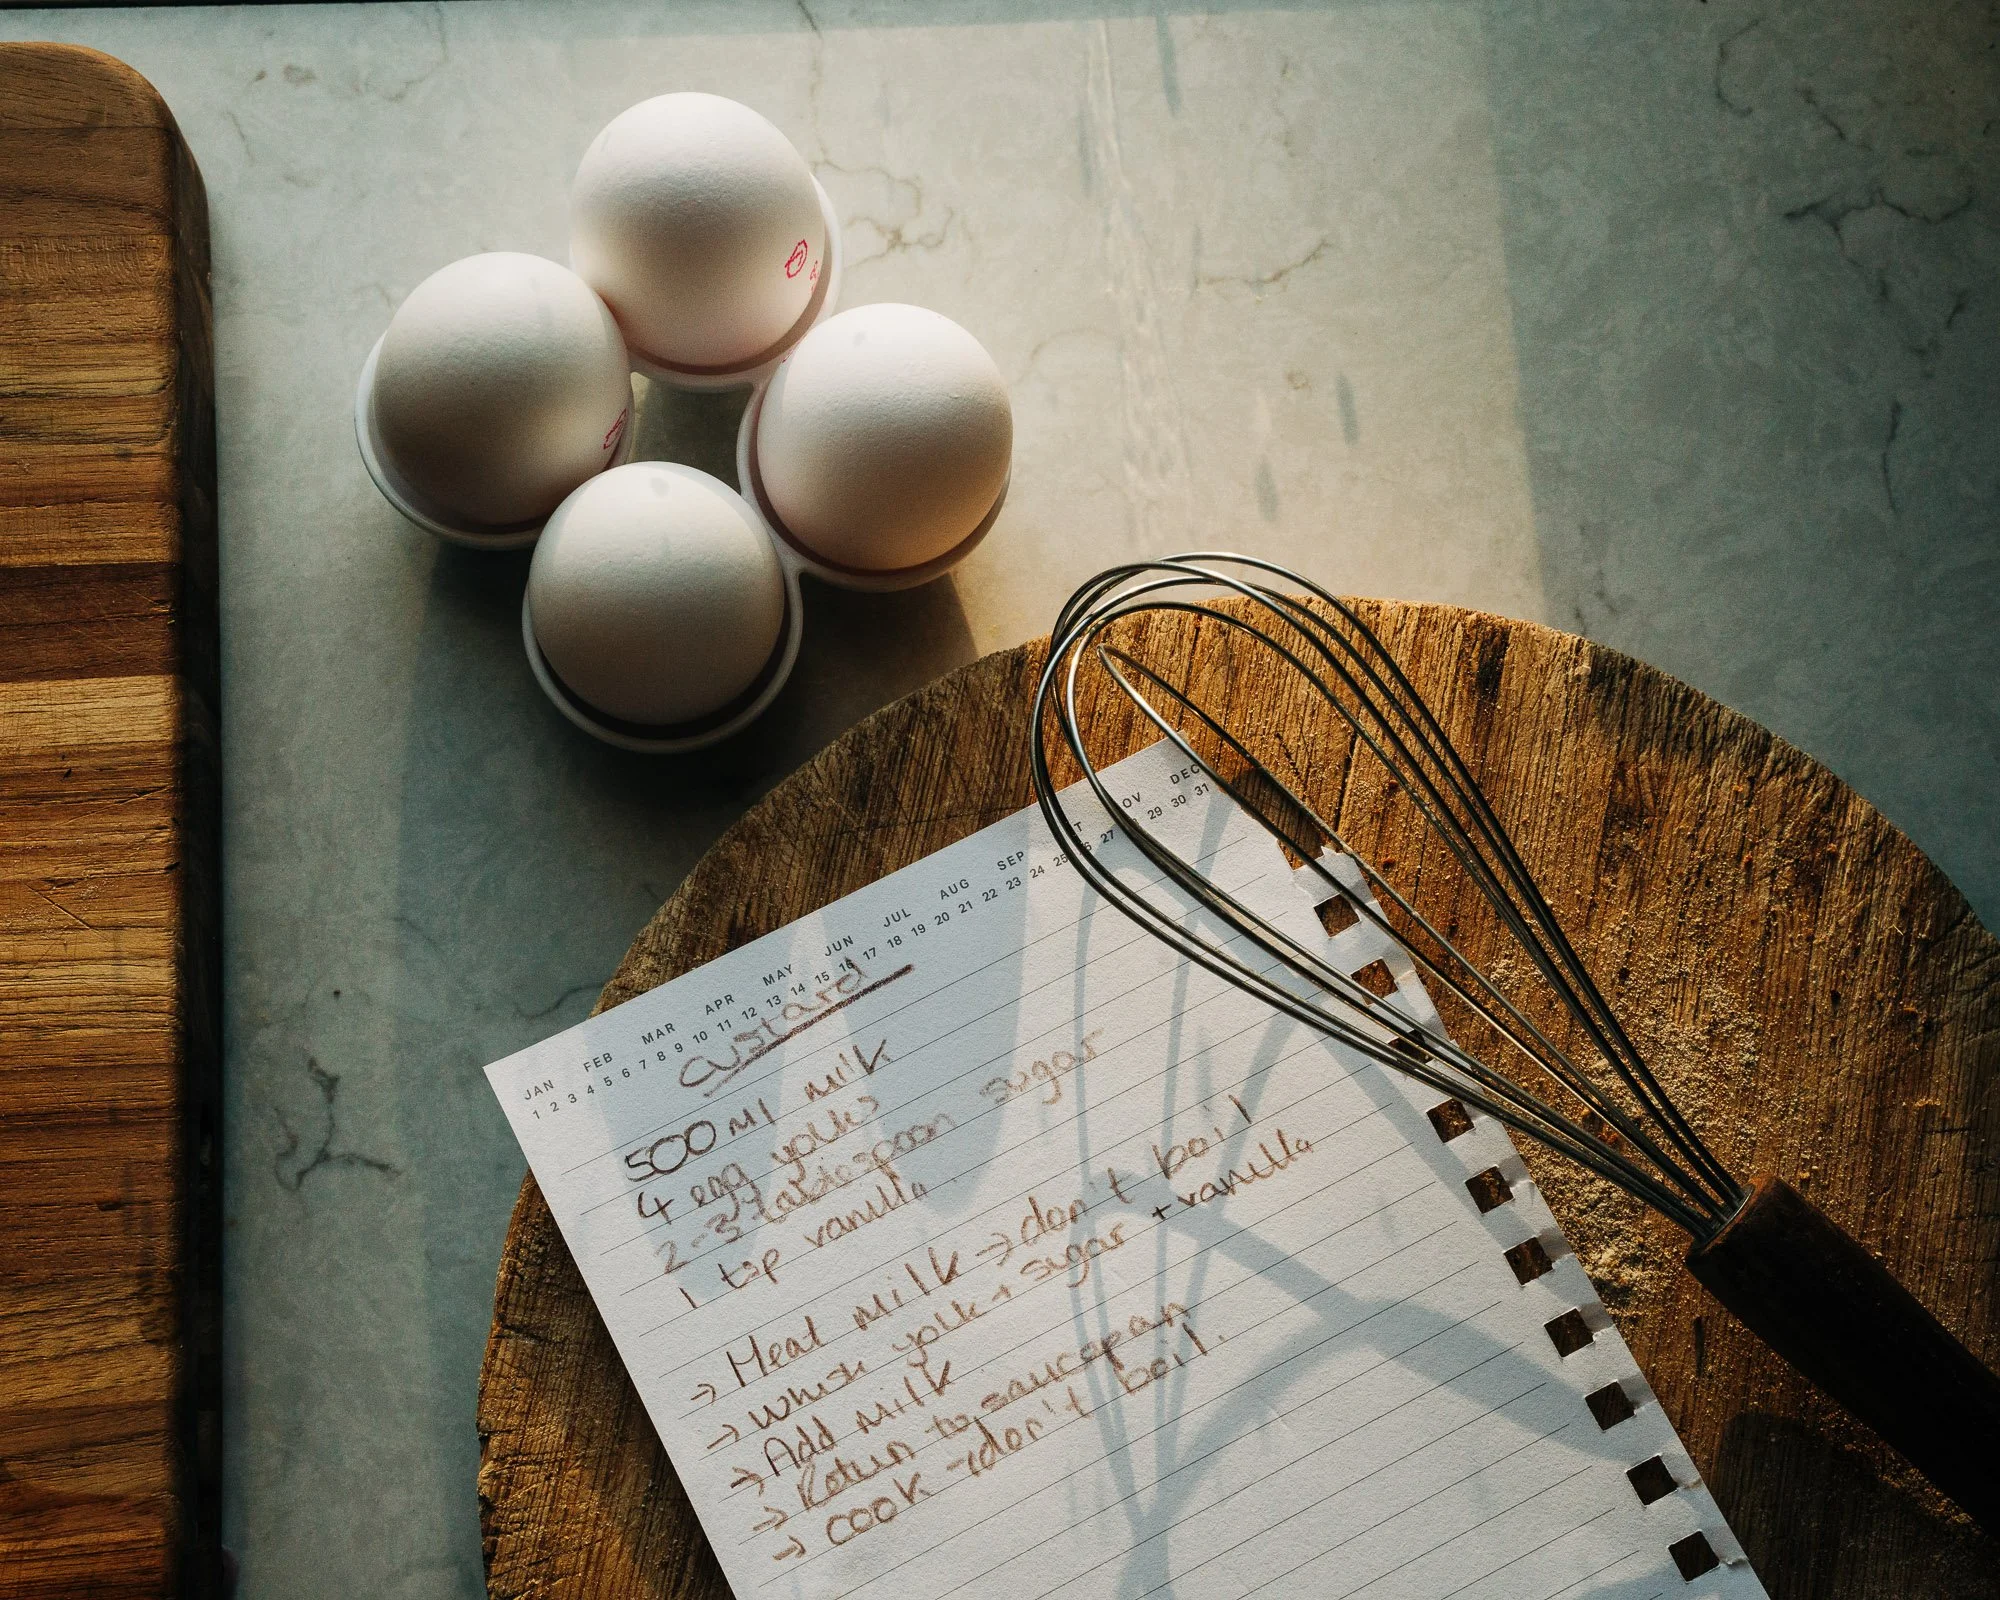 JAN FEB MAR APR MAY JUN JUL AUG SEP OV DEC
1 2 3 4 5 6 7 8 9 10 11 12 13 14 15 16 17 18 19 20 21 22 23 24 25 27 29 30 31
custard
500ml milk
4 egg yolks
2-3 tablespoon sugar
1 tsp vanilla
→ Heat milk → don't boil
→ whisk yolk + sugar + vanilla
→ Add milk
→ Return to saucepan
→ cook → don't boil.